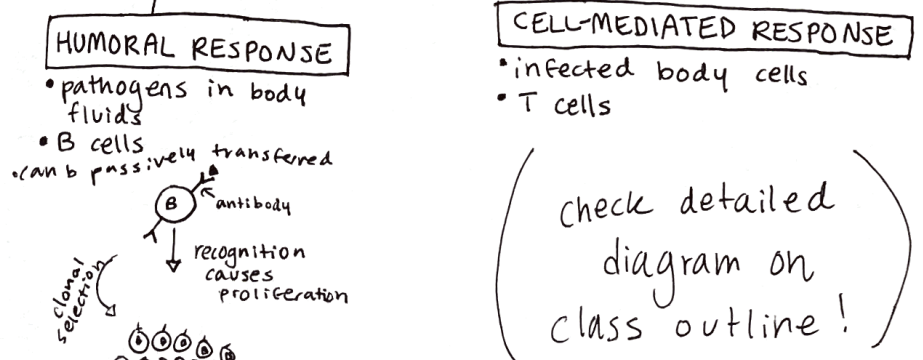 HUMORAL RESPONSE
• pathogens in body
fluids
• B cells
• can b passively transferred
B
antibody
recognition
causes
proliferation
clonal
selection
CELL-MEDIATED RESPONSE
• infected body cells
• T cells
(check detailed
diagram on
class outline!)